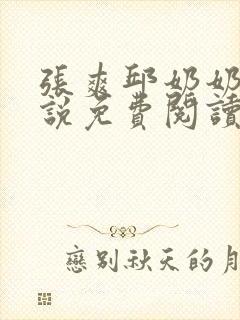 張爽邱奶奶
說免費閱讀
戀別秋天的月